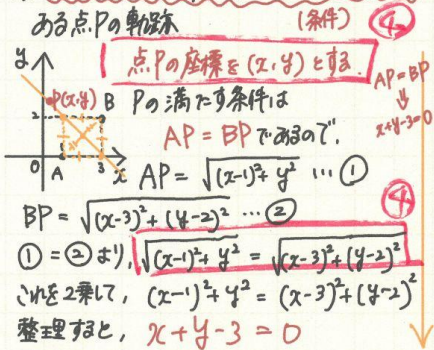 ある点Pの軌跡 (条件) ④
点Pの座標を(x,y)とする
AP=BP
⇓
x+y-3=0
y P(x,y) B 2 0 A 3 x
Pの満たす条件は
AP=BPであるので,
AP=√(x-1)²+y² …①
BP=√(x-3)²+(y-2)² …②
④
①=②より,√(x-1)²+y²=√(x-3)²+(y-2)²
これを2乗して, (x-1)²+y²=(x-3)²+(y-2)²
整理すると, x+y-3=0